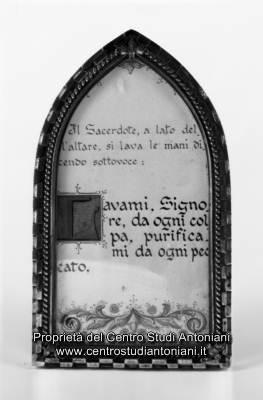 Il Sacerdote, a lato del
l'altare, si lava le mani di
cendo sottovoce:
Lavami, Signo
re, da ogni col
pa, purifica
mi da ogni pec
cato.
Proprietà del Centro Studi Antoniani
www.centrostudiantoniani.it